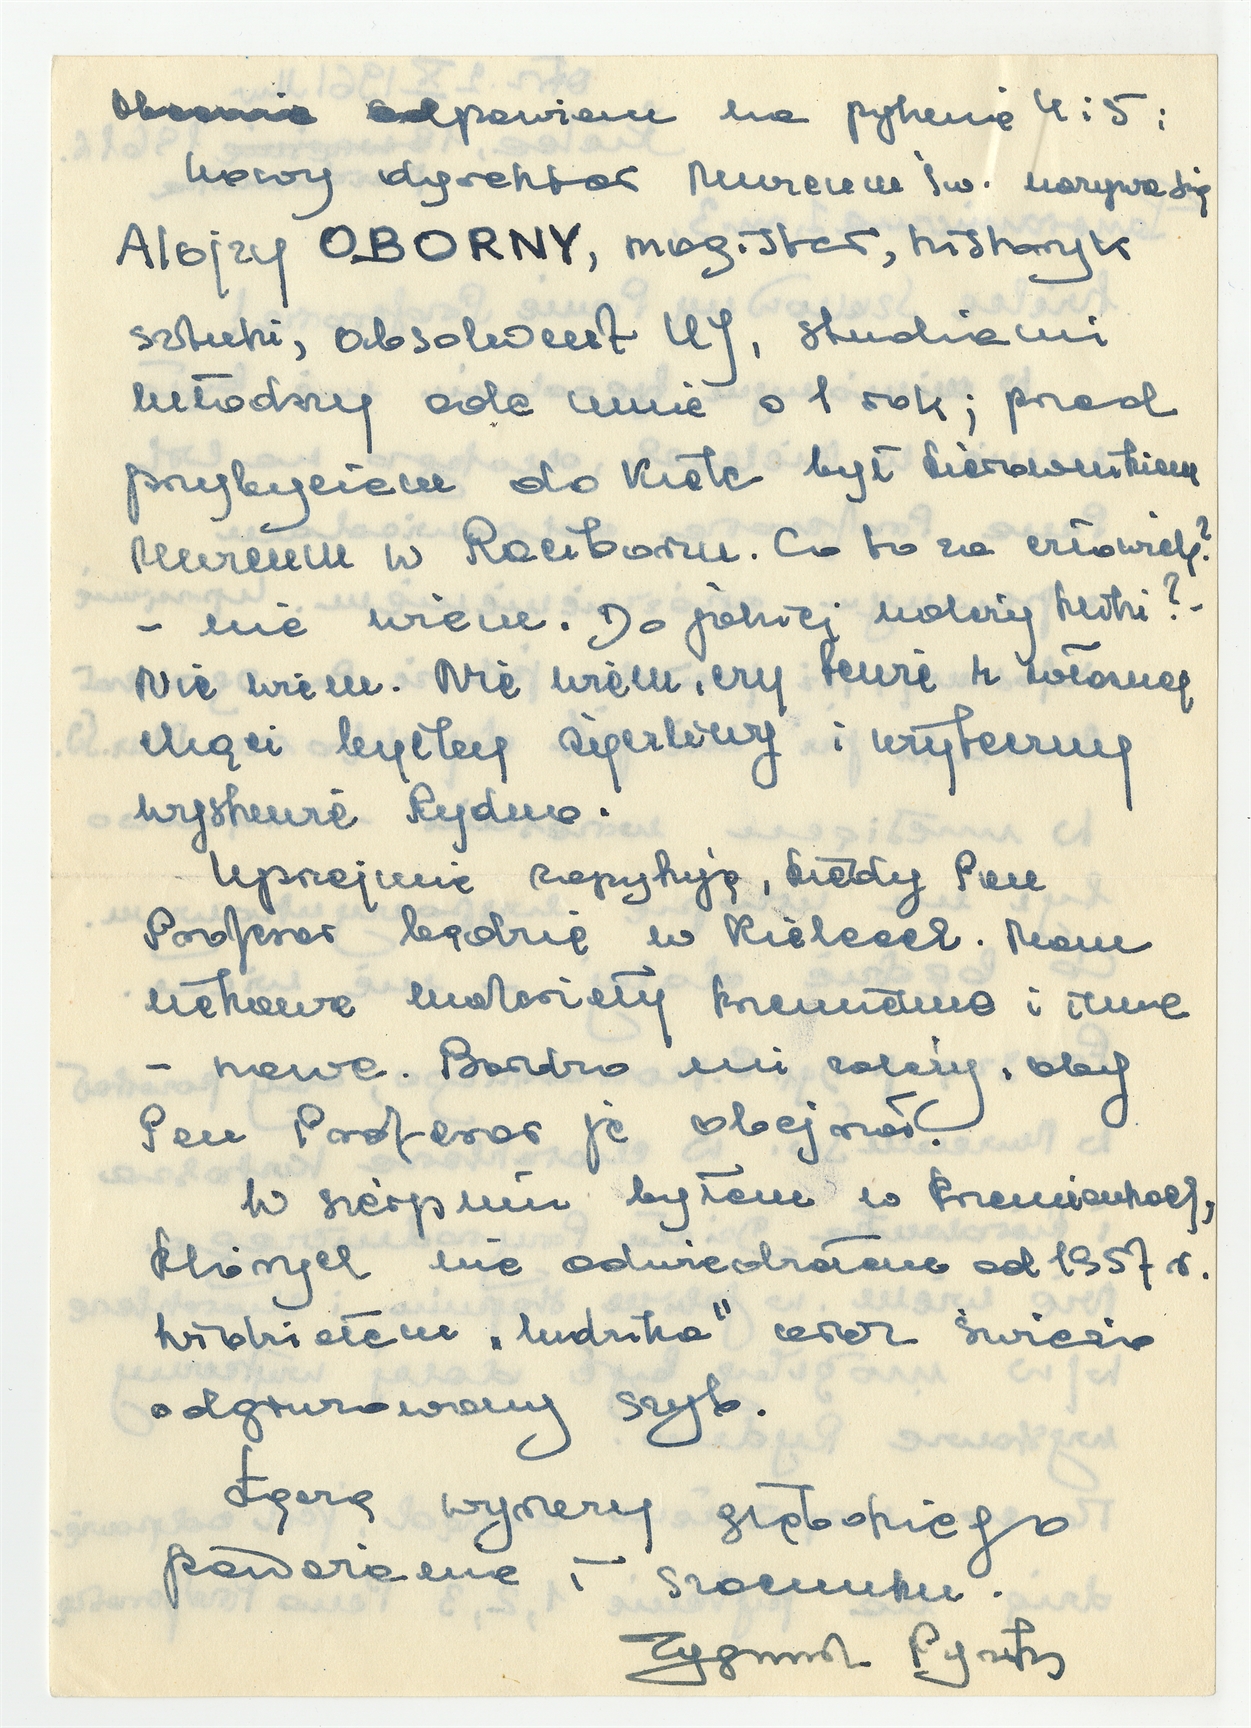 Obecnie odpowiem na pytanie 4 i 5:
Nowy dyrektor Muzeum Św. nazywa się
Alojzy OBORNY, magister, historyk
sztuki, absolwent UJ, studiami
młodszy ode mnie o 1 rok; przed
przybyciem do Kielc był kierownikiem
Muzeum w Raciborzu. Co to za człowiek?
- nie wiem. Do jakiej należy kliki? -
Nie wiem. Nie wiem, czy będzie z własnej
chęci byłby życzliwy i użyteczny
wystawie Rydna.
Uprzejmie zapytuję, kiedy Pan
Profesor będzie w Kielcach. Mam
ciekawe materiały krzemienne i inne
- nowe. Bardzo mi zależy, aby
Pan Profesor je obejrzał.
W sierpniu byłem w Krzemionkach,
których nie odwiedzałem od 1957 r.
Widziałem „ludzika" oraz świeżo
odgruzowany szyb.
Łączę wyrazy głębokiego
poważania i szacunku.
Zygmunt Pyzik